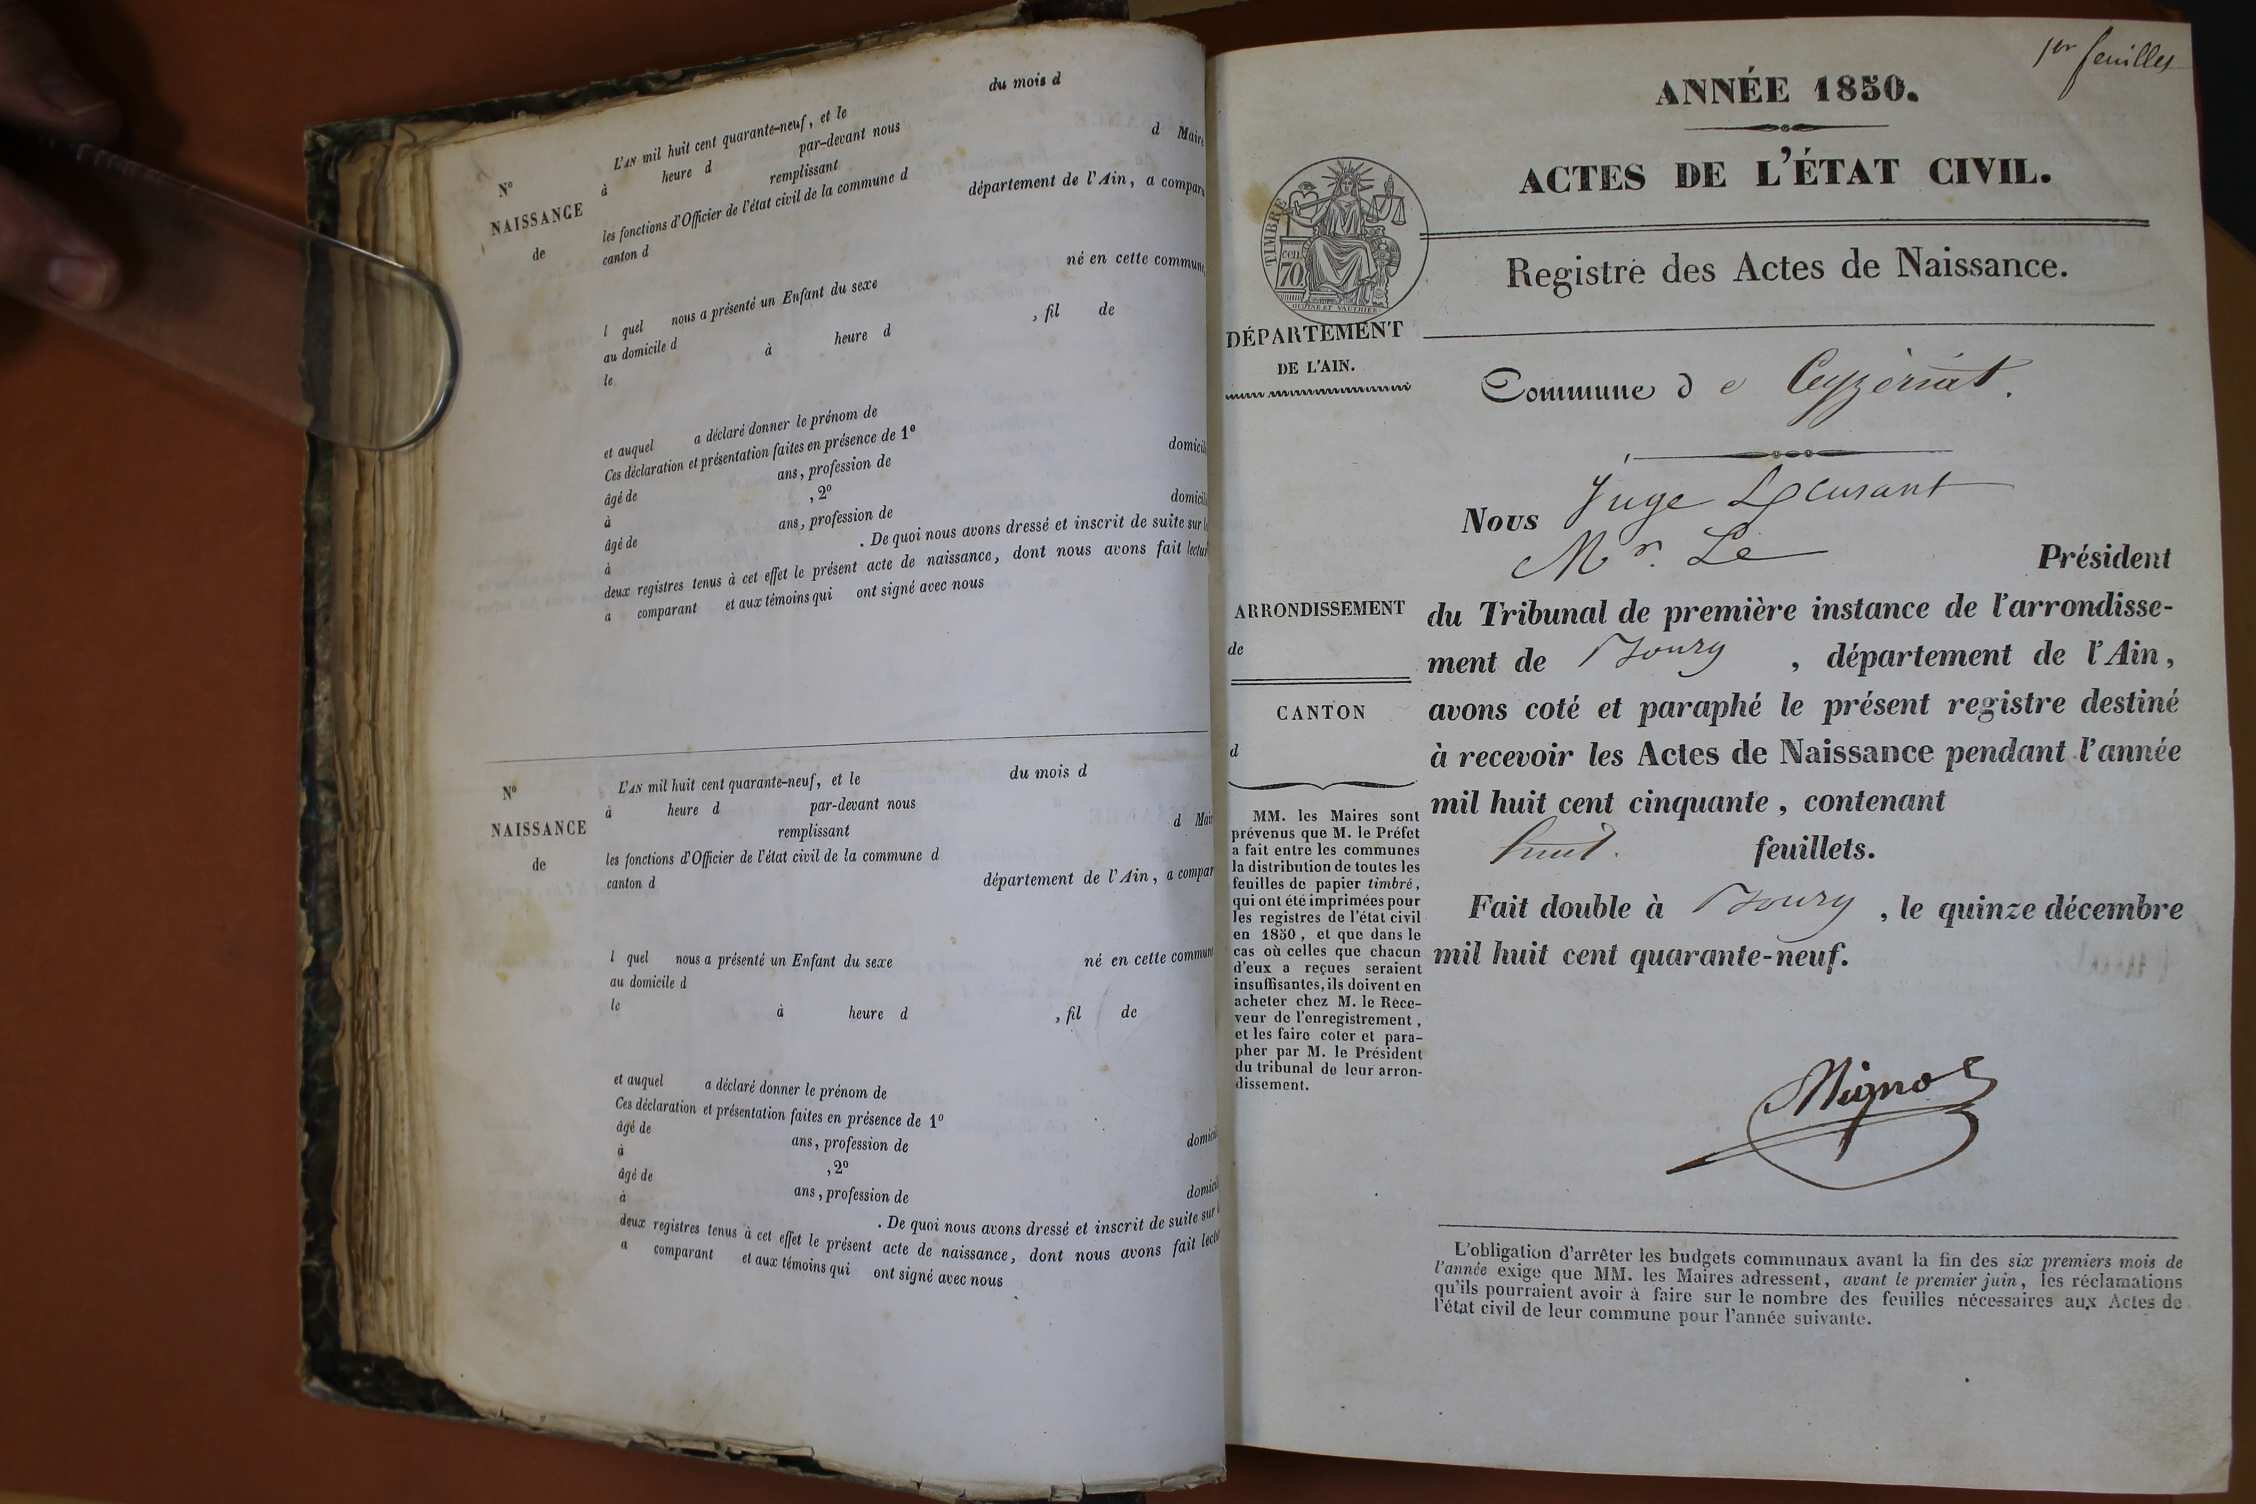 du mois d
L'AN mil huit cent quarante-neuf, et le
N° à heure d par-devant nous d Maire
remplissant
NAISSANCE les fonctions d'Officier de l'état civil de la commune d
de canton d département de l'Ain, a comparu
l quel nous a présenté un Enfant du sexe né en cette commune,
au domicile d
le à heure d , fil de
et auquel a déclaré donner le prénom de
Ces déclaration et présentation faites en présence de 1°
âgé de ans, profession de domicili
à , 2°
âgé de ans, profession de domicili
à . De quoi nous avons dressé et inscrit de suite sur l
deux registres tenus à cet effet le présent acte de naissance, dont nous avons fait lectur
a comparant et aux témoins qui ont signé avec nous
N° L'AN mil huit cent quarante-neuf, et le du mois d
à heure d par-devant nous
NAISSANCE remplissant d Mair
de les fonctions d'Officier de l'état civil de la commune d
canton d département de l'Ain, a compar
l quel nous a présenté un Enfant du sexe né en cette commune
au domicile d
le à heure d , fil de
et auquel a déclaré donner le prénom de
Ces déclaration et présentation faites en présence de 1°
âgé de ans, profession de domicili
à , 2°
âgé de ans, profession de domicil
à . De quoi nous avons dressé et inscrit de suite sur l
deux registres tenus à cet effet le présent acte de naissance, dont nous avons fait lectu
a comparant et aux témoins qui ont signé avec nous
1er feuillet
ANNÉE 1850.
ACTES DE L'ÉTAT CIVIL.
Registre des Actes de Naissance.
TIMBRE
cen.
70
DÉPARTEMENT
DE L'AIN.
Commune de Ceyzériat.
Nous Juge
Mr. Le Président
du Tribunal de première instance de l'arrondisse-
ment de Bourg , département de l'Ain,
avons coté et paraphé le présent registre destiné
à recevoir les Actes de Naissance pendant l'année
mil huit cent cinquante, contenant
huit. feuillets.
Fait double à Bourg , le quinze décembre
mil huit cent quarante-neuf.
ARRONDISSEMENT
de
CANTON
d
MM. les Maires sont
prévenus que M. le Préfet
a fait entre les communes
la distribution de toutes les
feuilles de papier timbré,
qui ont été imprimées pour
les registres de l'état civil
en 1850, et que dans le
cas où celles que chacun
d'eux a reçues seraient
insuffisantes, ils doivent en
acheter chez M. le Rece-
veur de l'enregistrement,
et les faire coter et para-
pher par M. le Président
du tribunal de leur arron-
dissement.
L'obligation d'arrêter les budgets communaux avant la fin des six premiers mois de
l'année exige que MM. les Maires adressent, avant le premier juin, les réclamations
qu'ils pourraient avoir à faire sur le nombre des feuilles nécessaires aux Actes de
l'état civil de leur commune pour l'année suivante.